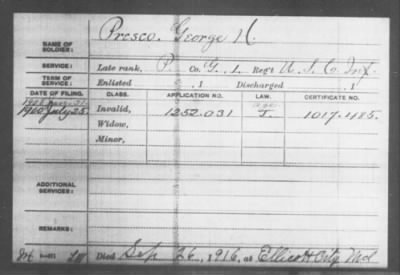 NAME OF SOLDIER: Presco, George H.
SERVICE: Late rank, P Co. G, 1, Reg't U. S. C. Inf.
TERM OF SERVICE: Enlisted , 1 Discharged , 1
DATE OF FILING. CLASS. APPLICATION NO. LAW. CERTIFICATE NO.
1900 July 25. Invalid, 1252.031 1017.485.
Widow,
Minor,
ADDITIONAL SERVICES:
REMARKS:
Died Sep 26, 1916, at Ellicott City Md